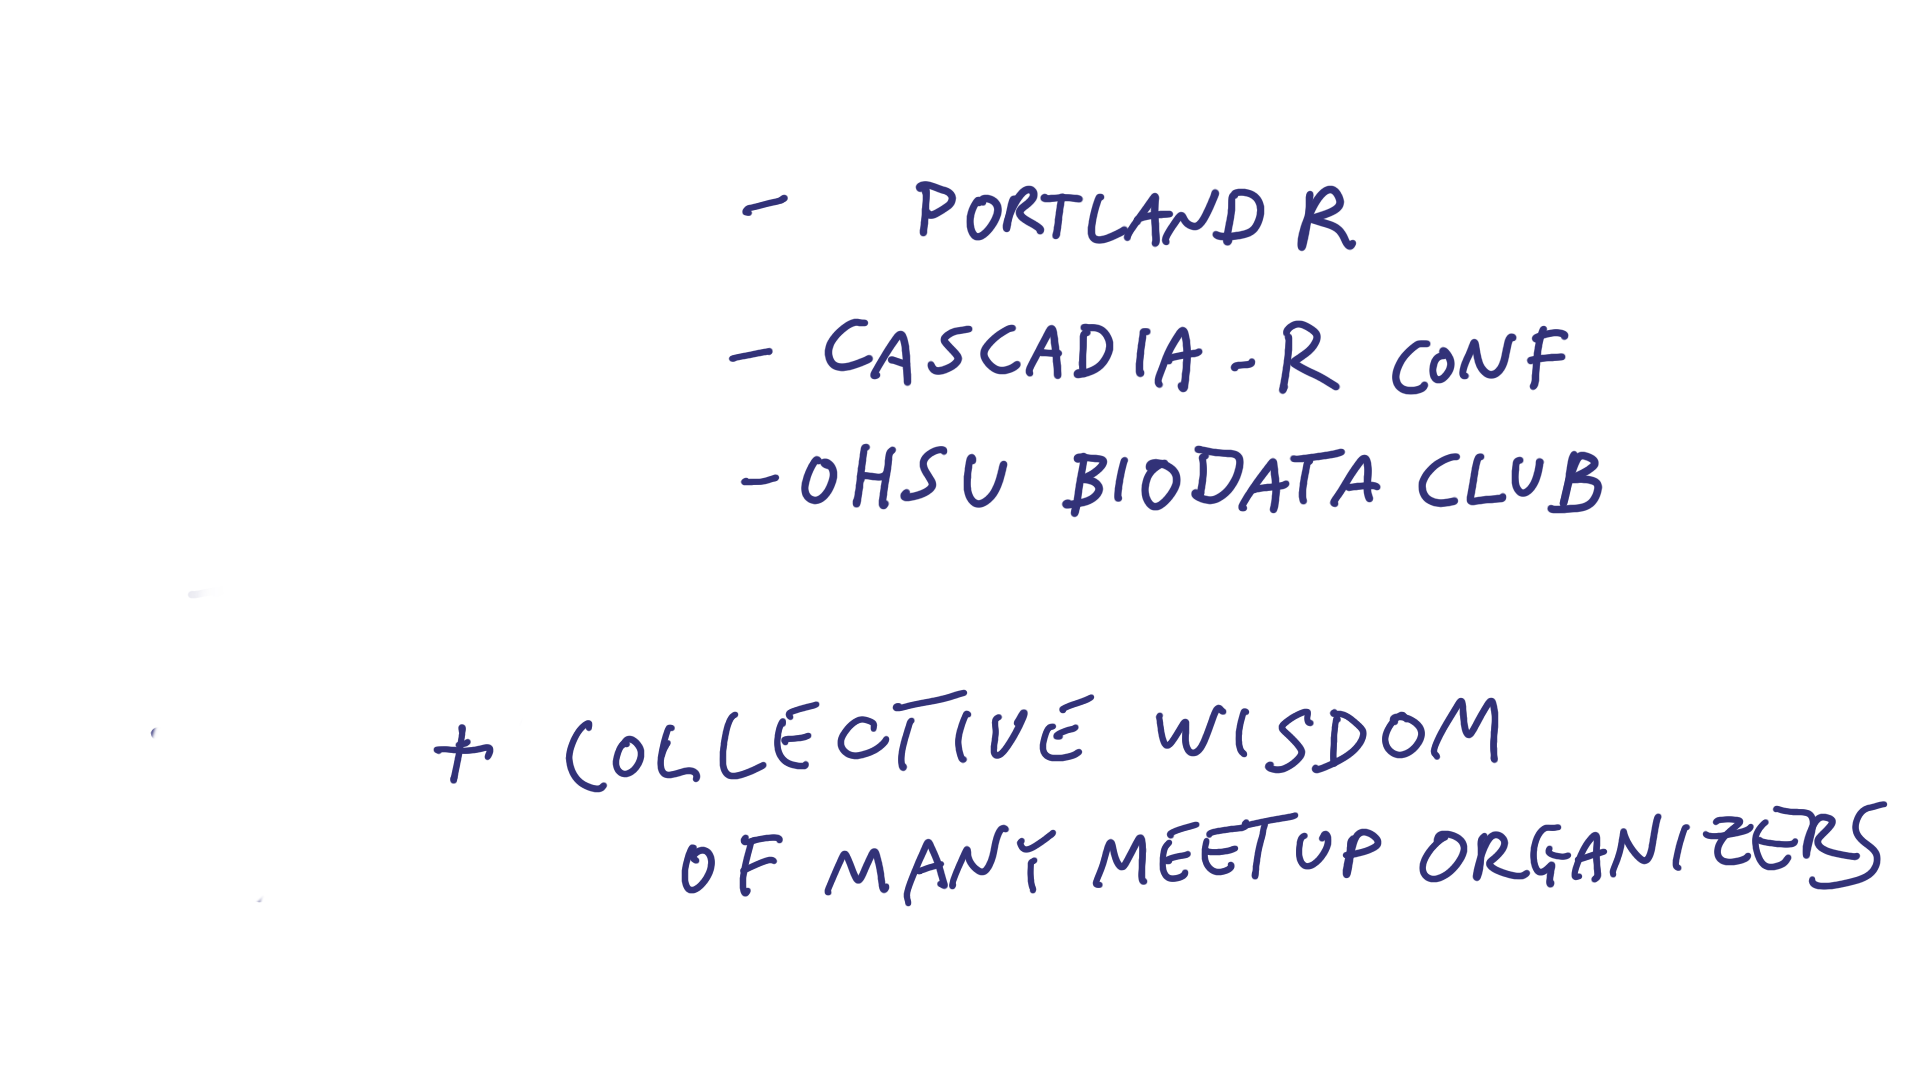 - PORTLAND R
- CASCADIA - R CONF
- OHSU BIODATA CLUB
+ COLLECTIVE WISDOM
OF MANY MEETUP ORGANIZERS